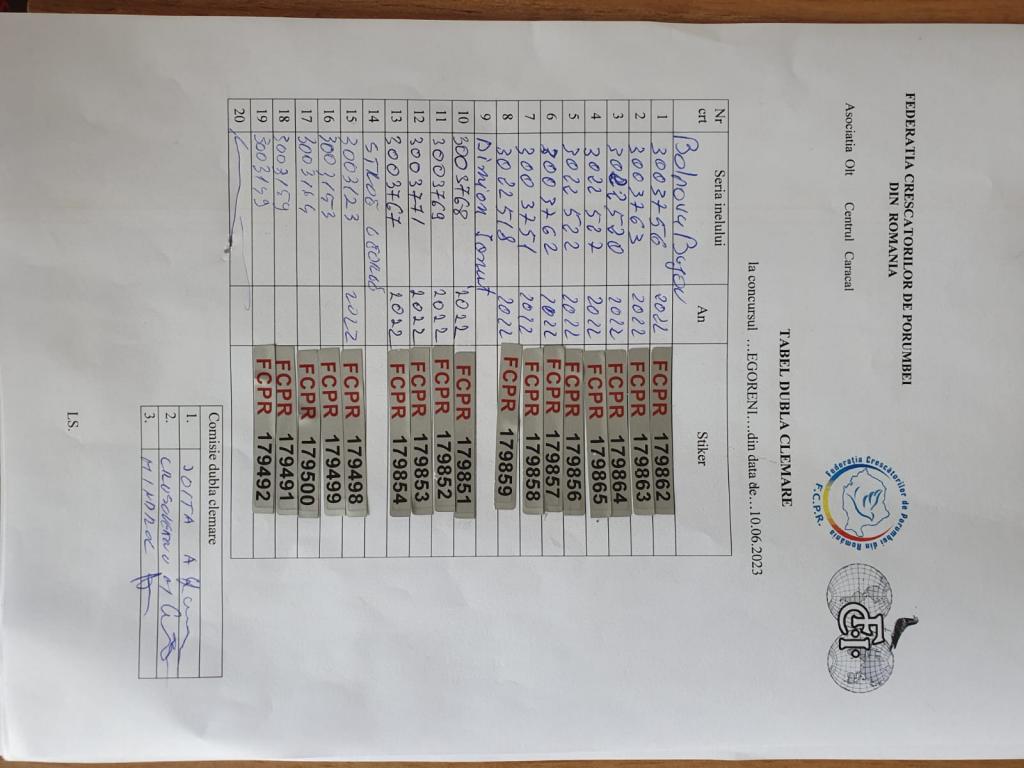 FEDERATIA CRESCATORILOR DE PORUMBEI
DIN ROMANIA
Asociatia Olt Centrul Caracal
Federatia Crescătorilor de Porumbei din România
F.C.P.R.
F.C.I.
TABEL DUBLA CLEMARE
la concursul ....EGORENI....din data de...10.06.2023
Nr crt Seria inelului An Stiker
1 3003756 2022 FCPR 179862
2 3003763 2022 FCPR 179863
3 3022520 2022 FCPR 179864
4 3022527 2022 FCPR 179865
5 3022522 2022 FCPR 179856
6 3003762 2022 FCPR 179857
7 3003751 2022 FCPR 179858
8 3022518 2022 FCPR 179859
9 Ionut
10 3003768 2022 FCPR 179851
11 3003769 2022 FCPR 179852
12 3003771 2022 FCPR 179853
13 3003767 2022 FCPR 179854
14
15 3003123 2022 FCPR 179498
16 3003153 FCPR 179499
17 FCPR 179500
18 3003159 FCPR 179491
19 FCPR 179492
20
Comisie dubla clemare
1. DOITA A
2.
3.
I.S.